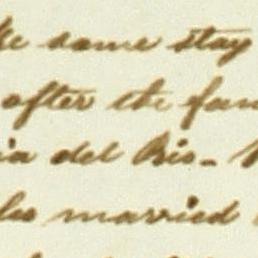 same stay
after the fam
ia del Rio-
married